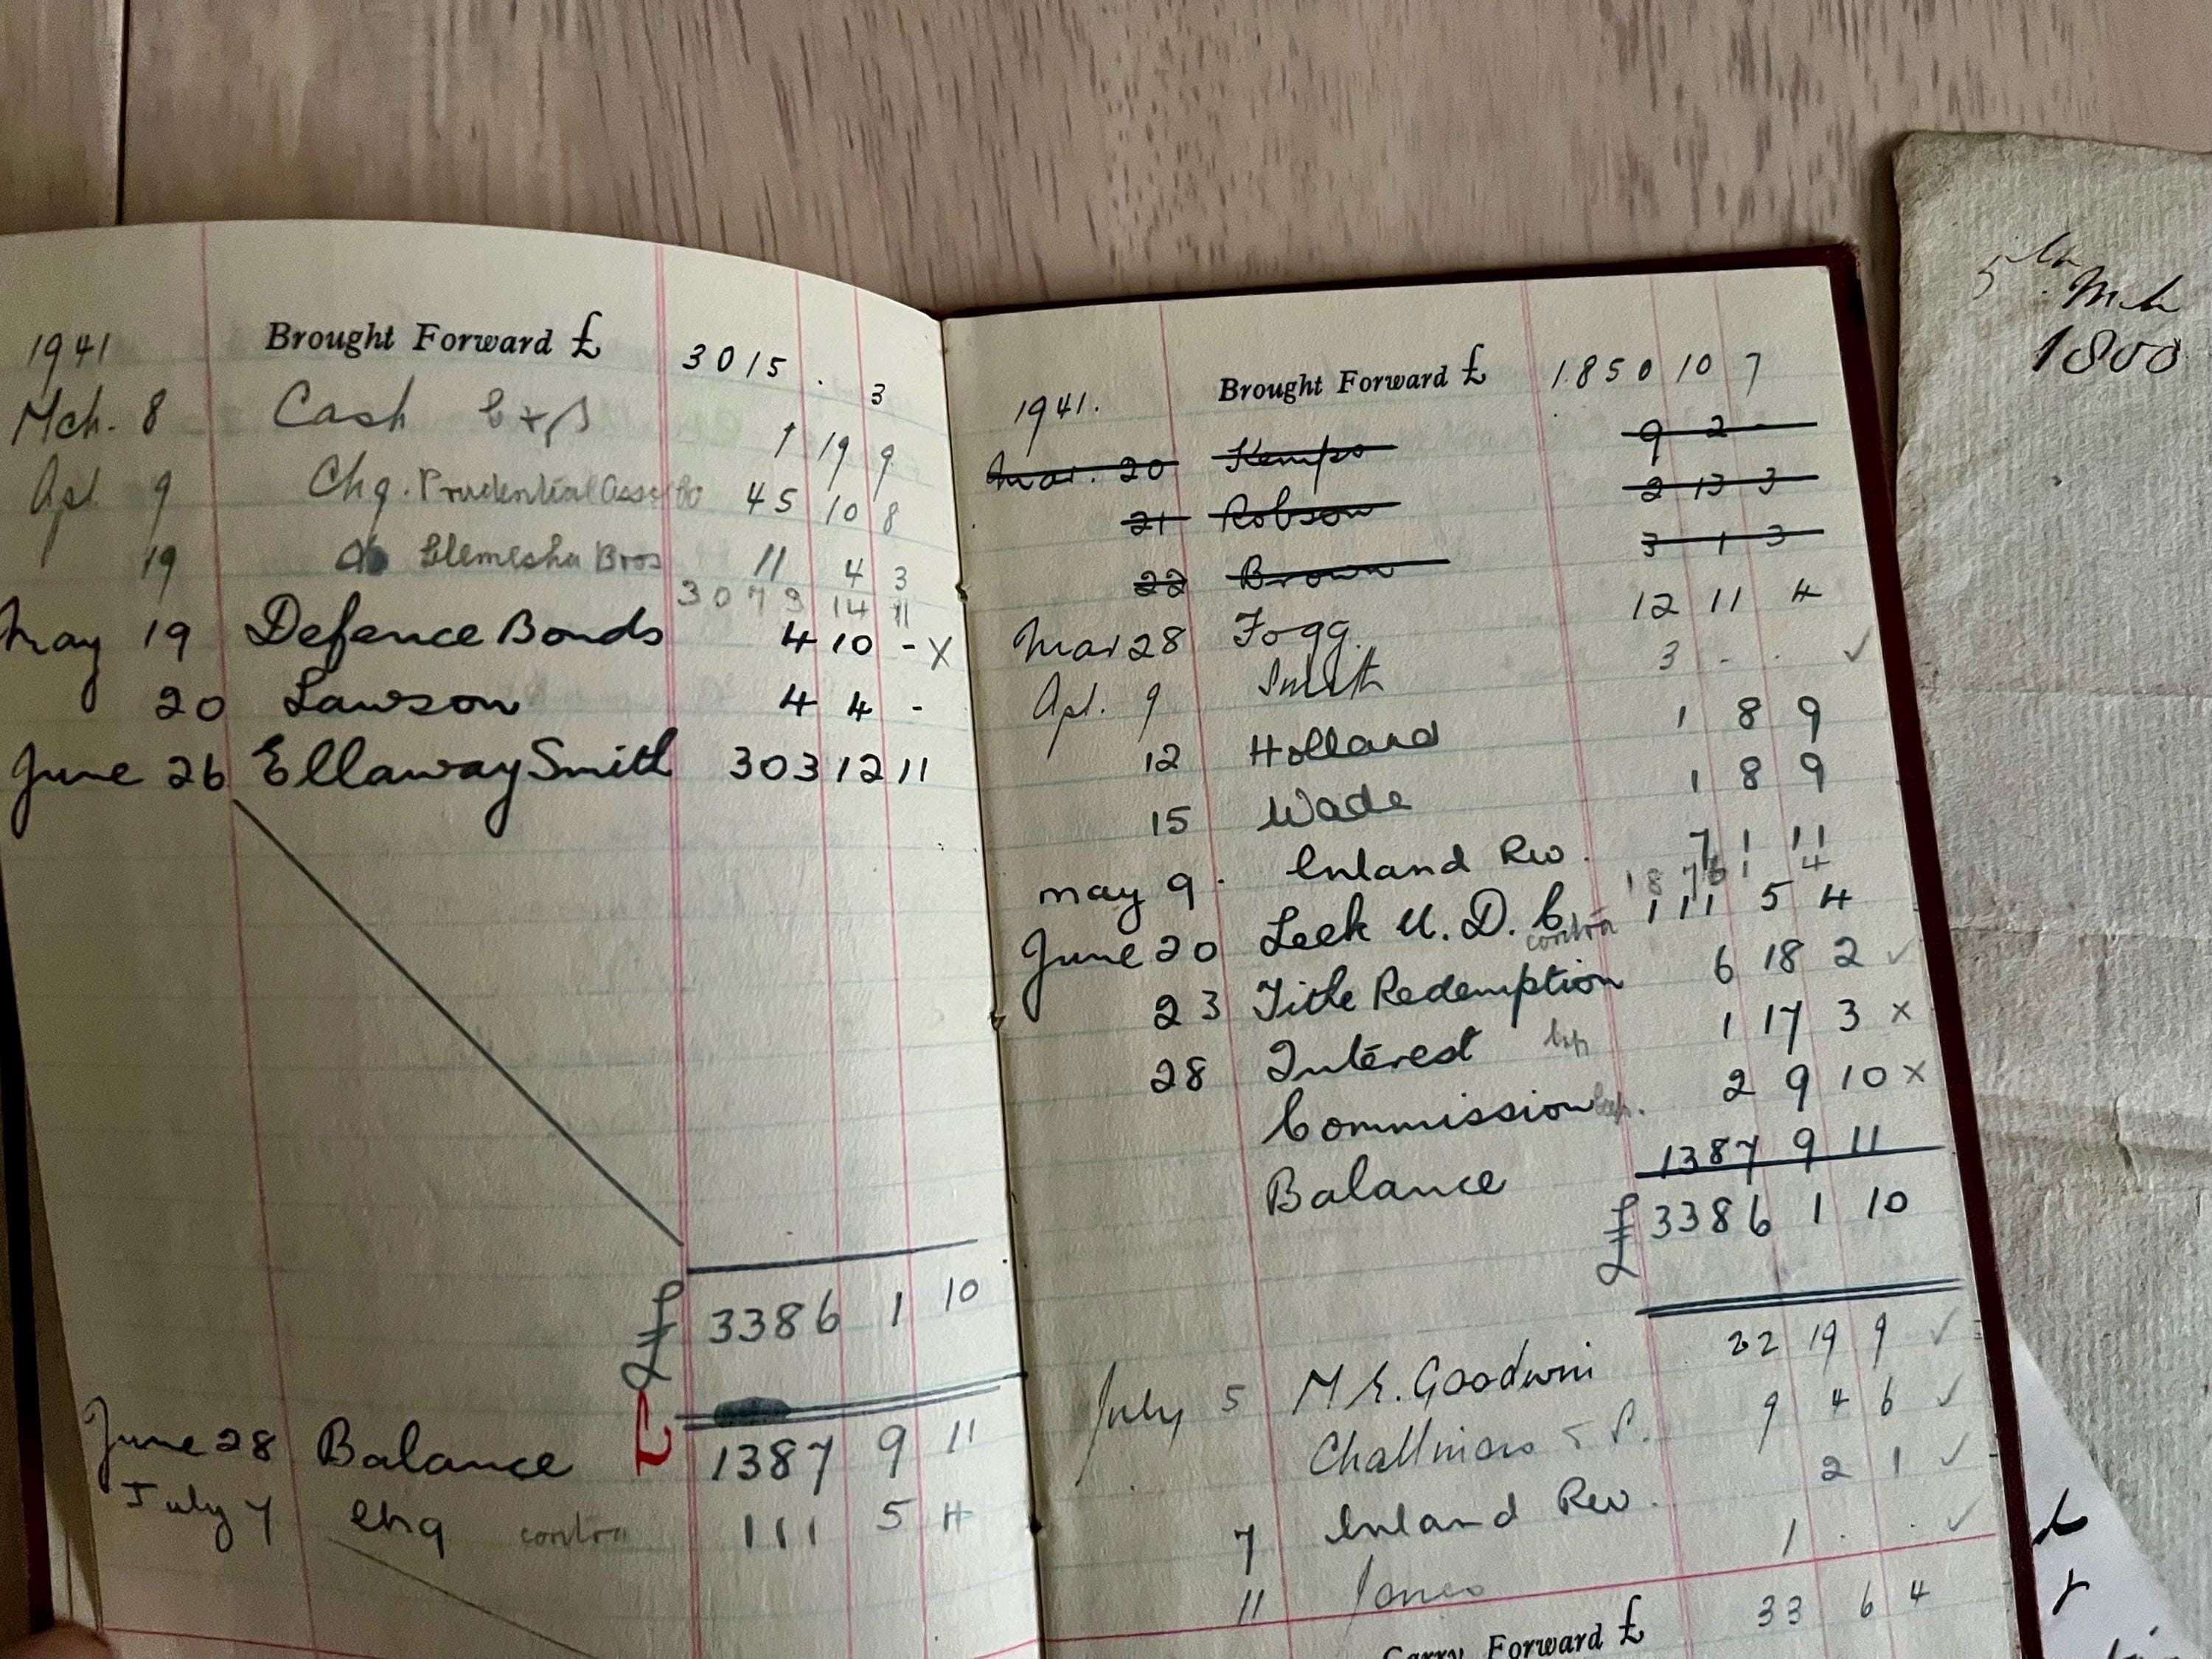 1941 Brought Forward £ 3015 . 3
Mch. 8 Cash 19 9
Apl. 9 Chq. Prudential Assce Co 45 10 8
19 do Clemesha Bros 11 4 3
3079 14 11
May 19 Defence Bonds 4 10 - X
20 Lawson 4 4 -
June 26 Ellaway Smith 303 12 11
£ 3386 1 10
June 28 Balance £ 1387 9 11
July 7 chq contra 111 5 4
1941. Brought Forward £ 1850 10 7
Mar. 20 Kemps 9 2 -
21 Robson 2 13 3
22 Brown 3 1 3
Mar 28 Fogg. 12 11 4
Apl. 9 Smith 3 - . ✓
12 Holland 1 8 9
15 Wade 1 8 9
May 9. Inland Rev. 7 1 11
1876 1 4
June 20 Leek U.D.C. contra 111 5 4
23 Tithe Redemption 6 18 2 ✓
28 Interest 1 17 3 x
Commission 2 9 10 x
Balance 1387 9 11
£ 3386 1 10
July 5 M E. Goodwin 22 19 9 ✓
9 4 6 ✓
7 Inland Rev. 2 1 ✓
11 Jones 1 . . ✓
Carry Forward £ 33 6 4
5th Mch
1800